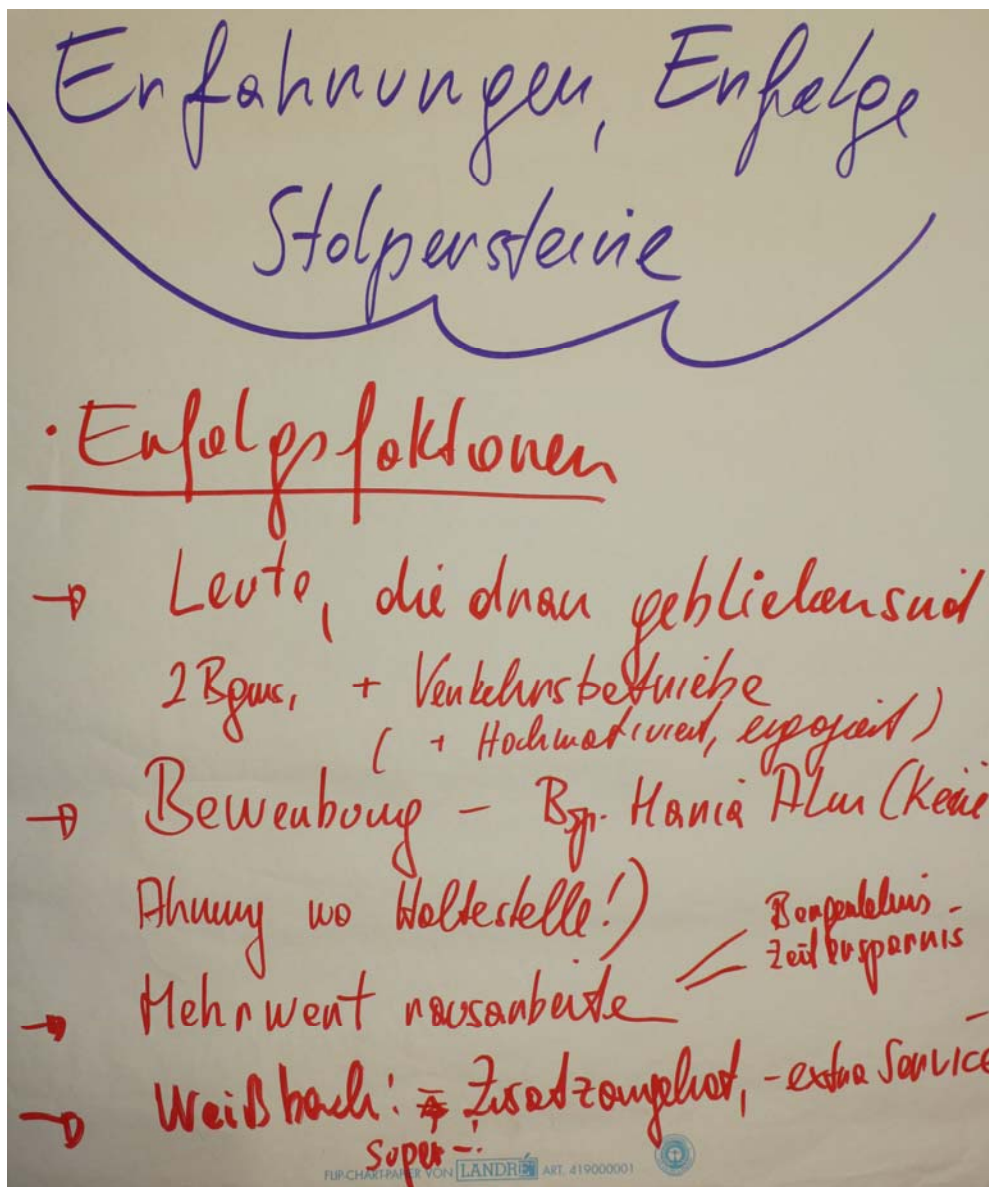 Erfahrungen, Erfolge
Stolpersteine
· Erfolgsfaktoren
→ Leute, die dran geblieben sind
2 Bgms, + Verkehrsbetriebe
( + Hochmotiviert, engagiert)
→ Bewerbung - Bsp. Maria Alm (Keine
Ahnung wo Haltestelle!)
Bergerlebnis -
Zeitersparnis
→ Mehrwert rausarbeite
→ Weißbach: = Zusatzangebot, - extra Service
super -!
FLIP-CHART-PAPIER VON LANDRÉ ART. 419000001